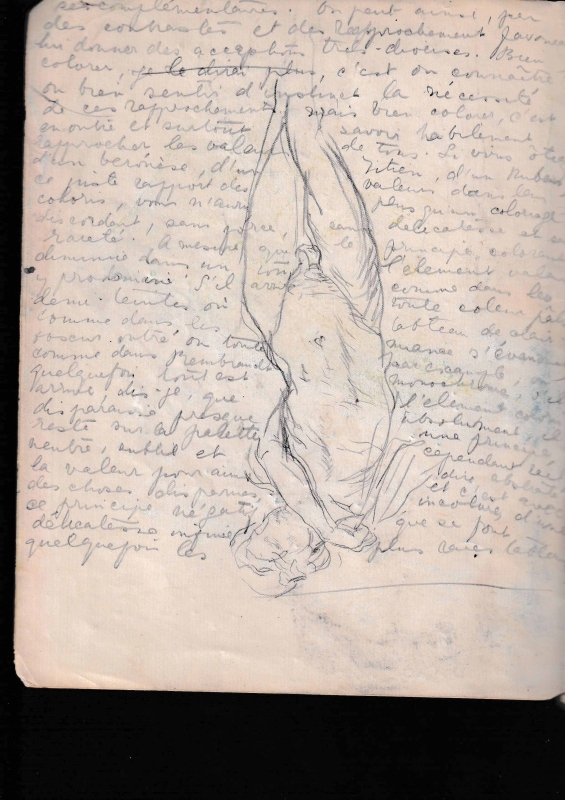 ses complémentaires. On peut ainsi, par
des contrastes et des rapprochements
lui donner des acceptions très diverses. Bien
colorer, je le dirai plus, c'est on connaître
ou bien sentir d'instinct la nécessité
de ces rapprochements, mais bien colorer, c'est
en outre et surtout savoir habilement
rapprocher les valeurs de tons. Si vous ôtiez
d'un Véronèse, d'un Titien, d'un Rubens
ce juste rapport des valeurs dans leur
coloris, vous n'auriez plus qu'un coloriage
discordant, sans force, sans délicatesse et sans
rareté. A mesure que le principe colorant
diminue dans un ton l'élément valeur
y prédomine. S'il arrive comme dans les
demi-teintes où toute couleur pâlit
comme dans les tableaux de clair
obscur outré, où toute nuance s'évanouit
comme dans Rembrandt par exemple, où
quelquefois tout est monochrome, s'il
arrive dis-je, que l'élément coloris
disparaisse presque absolument, il
reste sur la palette un principe
neutre, subtil et cependant réel
la valeur pour ainsi dire abstraite
des choses disparues, et c'est avec
ce principe négatif incolore d'une
délicatesse infinie que se font
quelquefois les plus rares tableaux